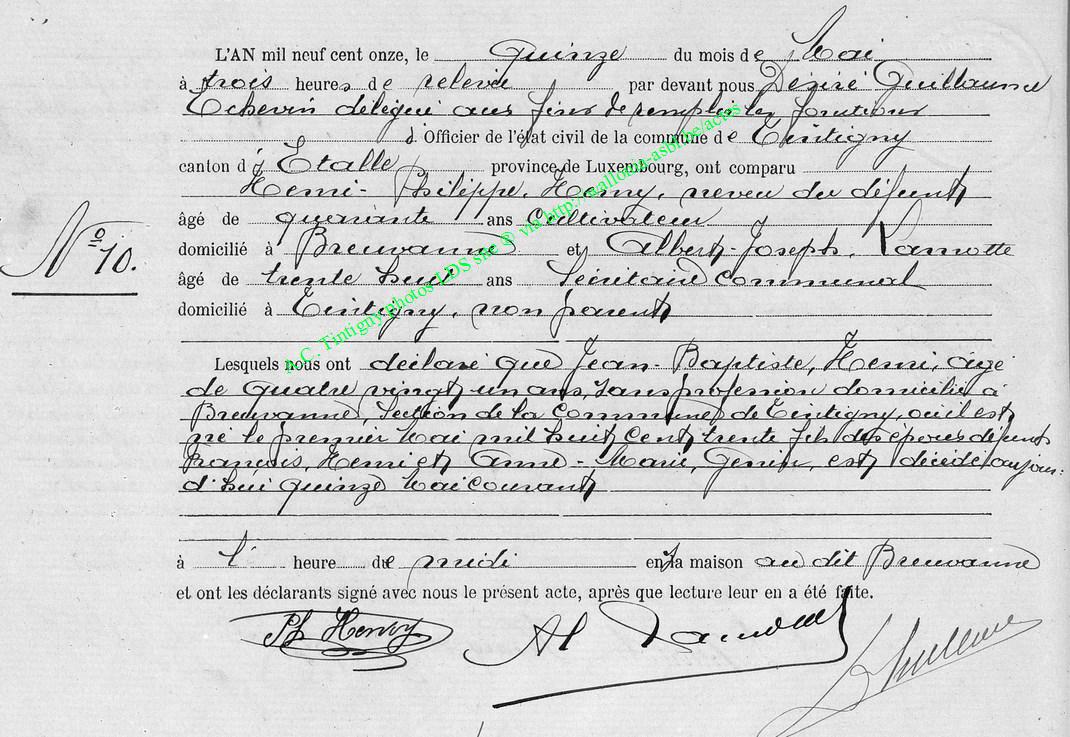 L'AN mil neuf cent onze, le Quinze du mois de Mai
à trois heures de relevée par devant nous Désiré Guillaume
Echevin délégué aux fins de remplir les fonctions
d'Officier de l'état civil de la commune de Tintigny
canton d'Etalle province de Luxembourg, ont comparu
Henri-Philippe, Henry, neveu du défunt
âgé de quarante ans Cultivateur
domicilié à Breuvanne et Albert-Joseph, Lamotte
N° 10.
âgé de trente huit ans Secrétaire Communal
domicilié à Tintigny, non parent
Lesquels nous ont déclaré que Jean-Baptiste, Henri, âgé
de Quatre vingt un ans, sans profession domicilié à
Breuvanne, Section de la Commune de Tintigny, où il est
né le premier Mai mil huit cent trente fils des époux défunts
François, Henri et Anne-Marie, Genin, est décédé aujour:
d'hui quinze Mai courant
à l' heure de midi en sa maison au dit Breuvanne
et ont les déclarants signé avec nous le présent acte, après que lecture leur en a été faite.
Ph Henry Al Lamotte Guillaume
A.C. Tintigny photos LDS site © via http://mallonia-asbl.be/actes